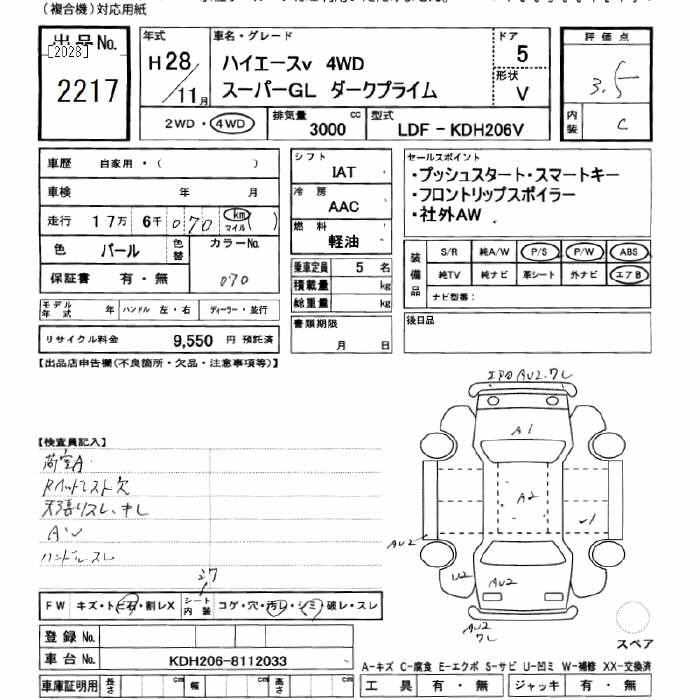 (複合機)対応用紙
出品No.
[2028]
2217
年式
H28/11月
車名・グレード
ハイエースv 4WD
スーパーGL ダークプライム
ドア
5
形状
V
評価点
3.5
内装
C
2WD・4WD
排気量
3000 cc
型式
LDF-KDH206V
車歴 自家用・( )
車検 年 月
走行 17万 6千 070 km マイル ( )
色 パール 色替
カラーNo.
070
保証書 有・無
モデル年式 年 ハンドル 左・右 ディーラー・並行
リサイクル料金 9,550 円 預託済
シフト
IAT
冷房
AAC
燃料
軽油
乗車定員 5 名
積載量 kg
総重量 kg
書類期限
月 日
セールスポイント
・プッシュスタート・スマートキー
・フロントリップスポイラー
・社外AW
装備品
S/R 純A/W P/S P/W ABS
純TV 純ナビ 革シート 外ナビ エアB
ナビ型番:
後日品
【出品店申告欄(不良箇所・欠品・注意事項等)】
【検査員記入】
荷室A
天張りスレ、キレ
ハンドルスレ
エアロ AU2.ワレ
A1
A2
AU2
U2
AU2
AU2
ワレ
スペア
FW キズ・トビ石・割レX シート内装 コゲ・穴・汚レ・シミ・破レ・スレ
登録No.
車台No. KDH206-8112033
車庫証明用 長さ cm 幅 cm 高さ cm
A-キズ C-腐食 E-エクボ S-サビ U-凹ミ W-補修 XX-交換済
工具 有・無 ジャッキ 有・無